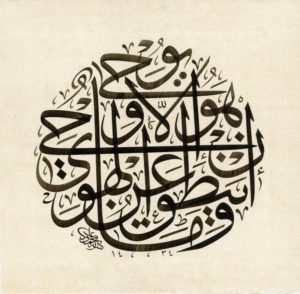 وما ينطق عن الهوى
إن هو إلا وحي يوحى
١٤ ٣٤